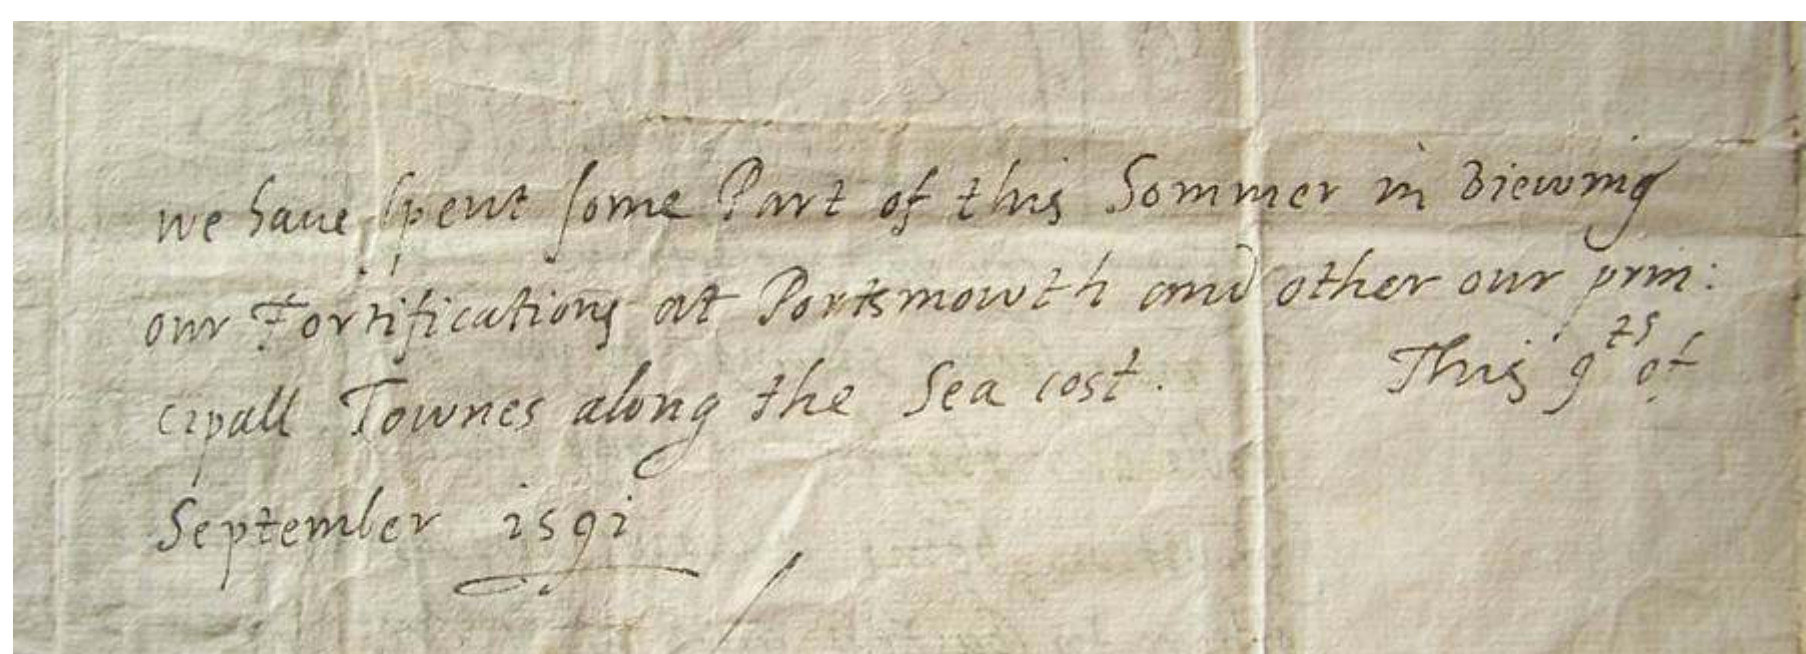 we haue spent some Part of this Sommer in viewing
our Fortifications at Portsmowth and other our prin:
cipall Townes along the Sea cost. This 9th of
September i59i